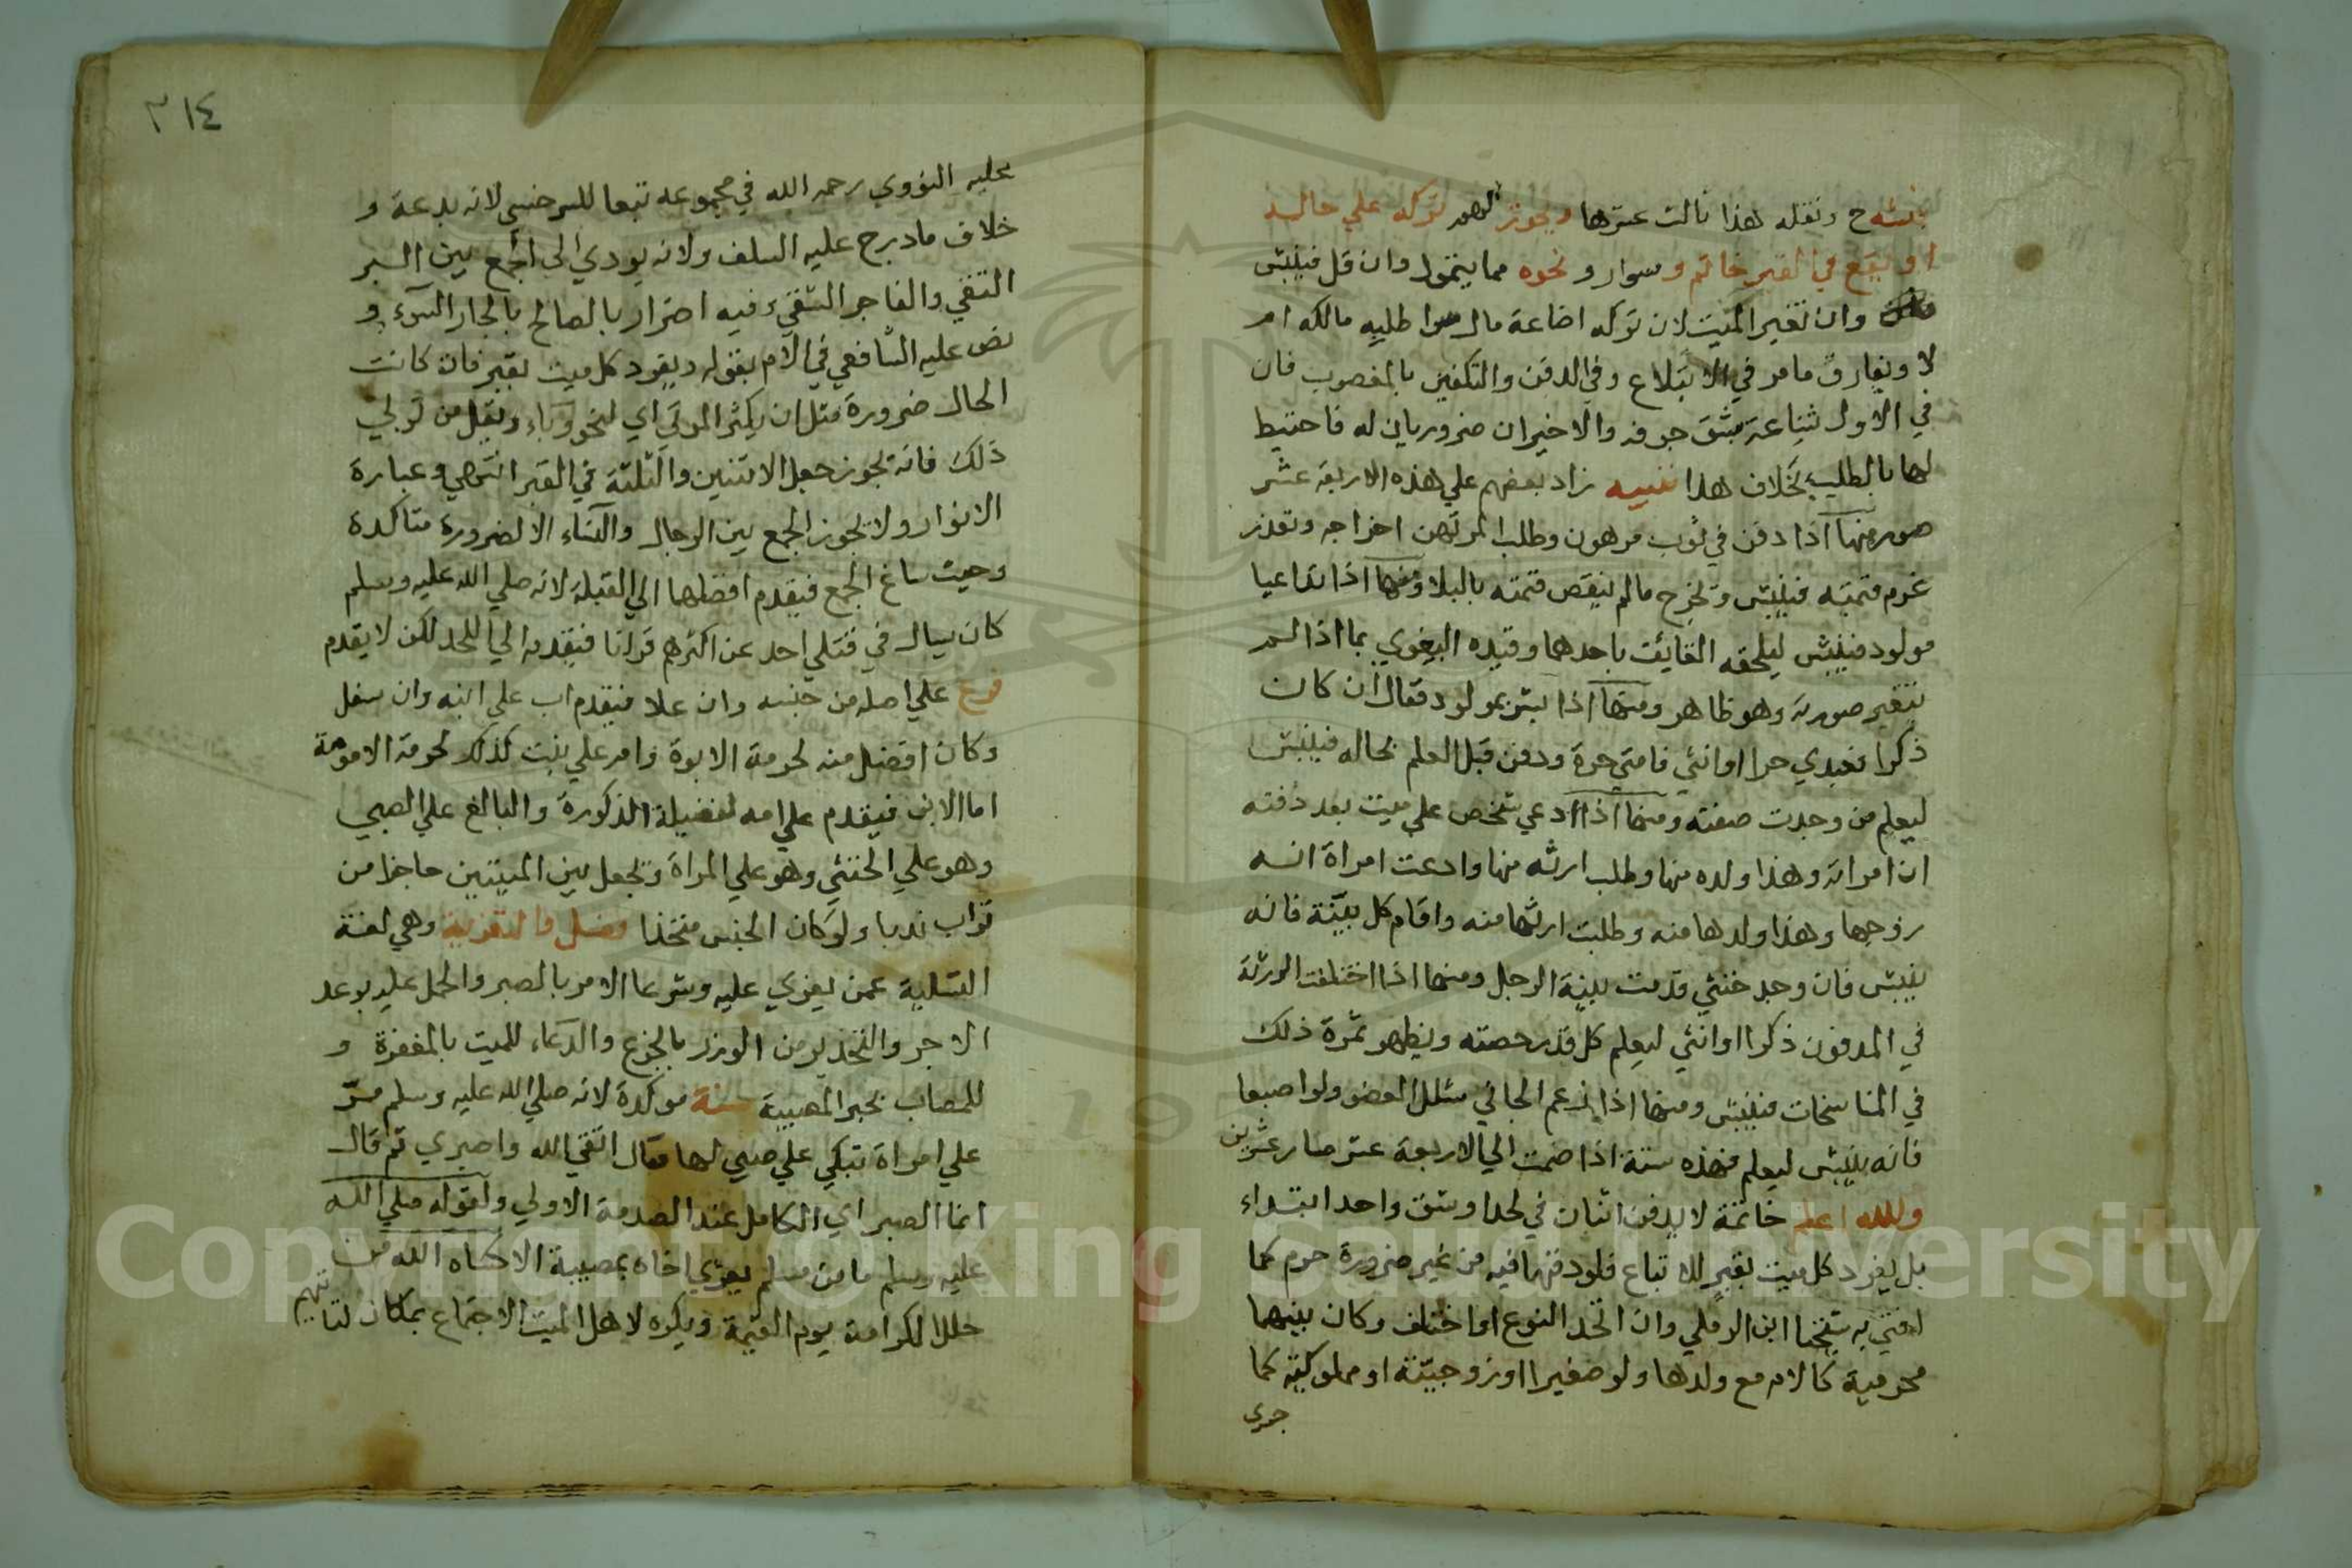 نبشه ح ونقله هذا ثالث عشرها ويجوز لهم تركه علي حاله
او يقع في القبر خاتم وسوار ونحوه مما يتمول وان قل فينبش
وان تغير الميت لان تركه اضاعة مال سوا طلبه مالكه ام
لا ويفارق ما مر في الابتلاع وفي الدفن والتكفين بالمغصوب فان
في الاول شناعة بشق جوفه والاخيران ضروريان له فاحتيط
لها بالطلب بخلاف هذا تنبيه زاد بعضهم علي هذه الاربعة عشر
صور منها اذا دفن في ثوب مرهون وطلب المرتهن اخراجه وتعذر
غرم قمته فينبش ويخرج مالم ينقص قمته بالبلا ومنها اذا تداعيا
مولود فينبش ليلحقه القايف باحدهما وقيده البغوي بما اذا لم
تتغير صورته وهو ظاهر ومنها اذا بشر بمولود فقال ان كان
ذكرا فعبدي حرا او انثي فامتي حرة ودفن قبل العلم بحاله فينبش
ليعلم من وجدت صفته ومنها اذا ادعي شخص علي ميت بعد دفنه
ان امراته وهذا ولده منها وطلب ارثه منها وادعت امراة انه
زوجها وهذا ولدها منه وطلبت ارثها منه واقام كل بينة فانه
ينبش فان وجد خنثي قدمت بينة الرجل ومنها اذا اختلفت الورثة
في المدفون ذكرا او انثي ليعلم كل قدر حصته ويظهر ثمرة ذلك
في المناسخات فينبش ومنها اذا زعم الجاني شلل العضو ولو اصبعا
فانه ينبش ليعلم فهذه ستة اذا ضمت الي الاربعة عشر صار عشرين
والله اعلم خاتمة لا يدفن اثنان في لحد او شق واحد ابتداء
بل يفرد كل ميت بقبر للاتباع فلو دفنهما فيه من غير ضرورة حرم كما
افتي به شيخنا ابن الرملي وان اتحد النوع او اختلف وكان بينهما
محرمية كالام مع ولدها ولو صغيرا او زوجية او مملوكية كما
جري
٣١٤
عليه النووي رحمه الله في مجموعه تبعا للسرخسي لانه بدعة و
خلاف ما درج عليه السلف ولانه يودي الي الجمع بين البر
التقي والفاجر الشقي وفيه اضرار بالصالح بالجار السوء و
نص عليه الشافعي في الام بقوله ويفرد كل ميت بقبر فان كانت
الحال ضرورة مثل ان يكثر الموتي اي لنحو وباء ويقل من تولي
ذلك فانه يجوز جعل الاثنين والثلثة في القبر انتهي وعبارة
الانوار ولا يجوز الجمع بين الرجال والنساء الا لضرورة متاكدة
وحيث ساغ الجمع فيقدم افضلها الي القبلة لانه صلي الله عليه وسلم
كان يسال في قتلي احد عن اكثرهم قرانا فيقدمه الي اللحد لكن لا يقدم
فرع علي اصله من جنسه وان علا فيقدم اب علي ابنه وان سفل
وكان افضل منه لحرمة الابوة وام علي بنت كذلك لحرمة الامومة
اما الابن فيقدم علي امه لفضيلة الذكورة والبالغ علي الصبي
وهو علي الخنثي وهو علي المراة ويجعل بين الميتين حاجزا من
تراب ندبا ولو كان الجنس متحدا فصل والتعزية وهي لغة
التسلية عمن يعزي عليه وشرعا الامر بالصبر والحمل عليه بوعد
الاجر والتحذير من الوزر بالجزع والدعاء للميت بالمغفرة و
للمصاب بجبر المصيبة سنة موكدة لانه صلي الله عليه وسلم مر
علي امراة تبكي علي صبي لها فقال اتقي الله واصبري ثم قال
انما الصبر اي الكامل عند الصدمة الاولي ولقوله صلي الله
عليه وسلم ما من مسلم يعزي اخاه بمصيبة الا كساه الله من
حلل الكرامة يوم القيمة ويكره لاهل الميت الاجتماع بمكان لتاتيهم
Copyright © King Saud University